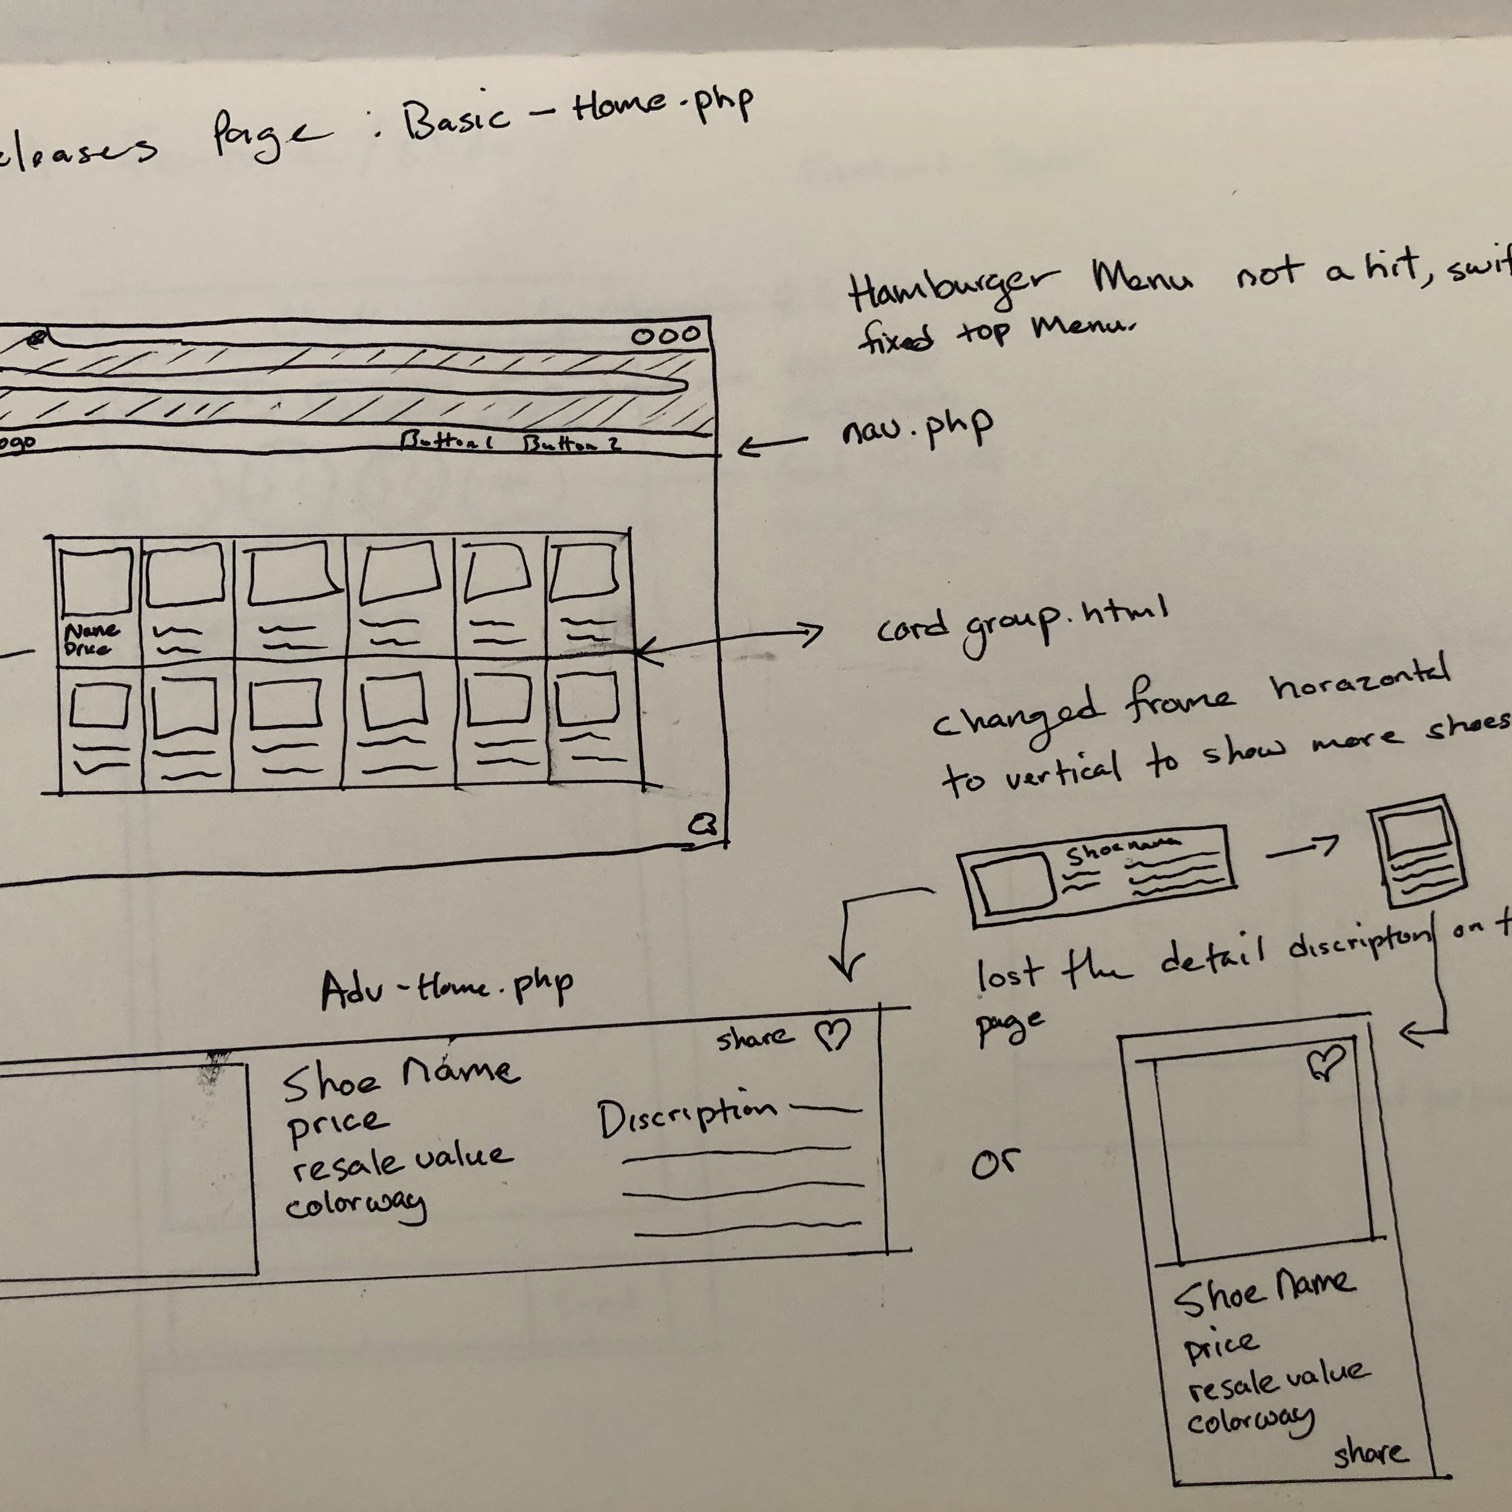 eleases Page : Basic - Home.php
Hamburger Menu not a hit, swit
fixed top Menu.
nav.php
ogo Button 1 Button 2
Name
Price
card group.html
changed frame horazontal
to vertical to show more shoes
Shoe name
lost the detail discripton on t
page
Adv-Home.php
share
Shoe Name
price
resale value
colorway
Discription
or
Shoe Name
price
resale value
colorway
share